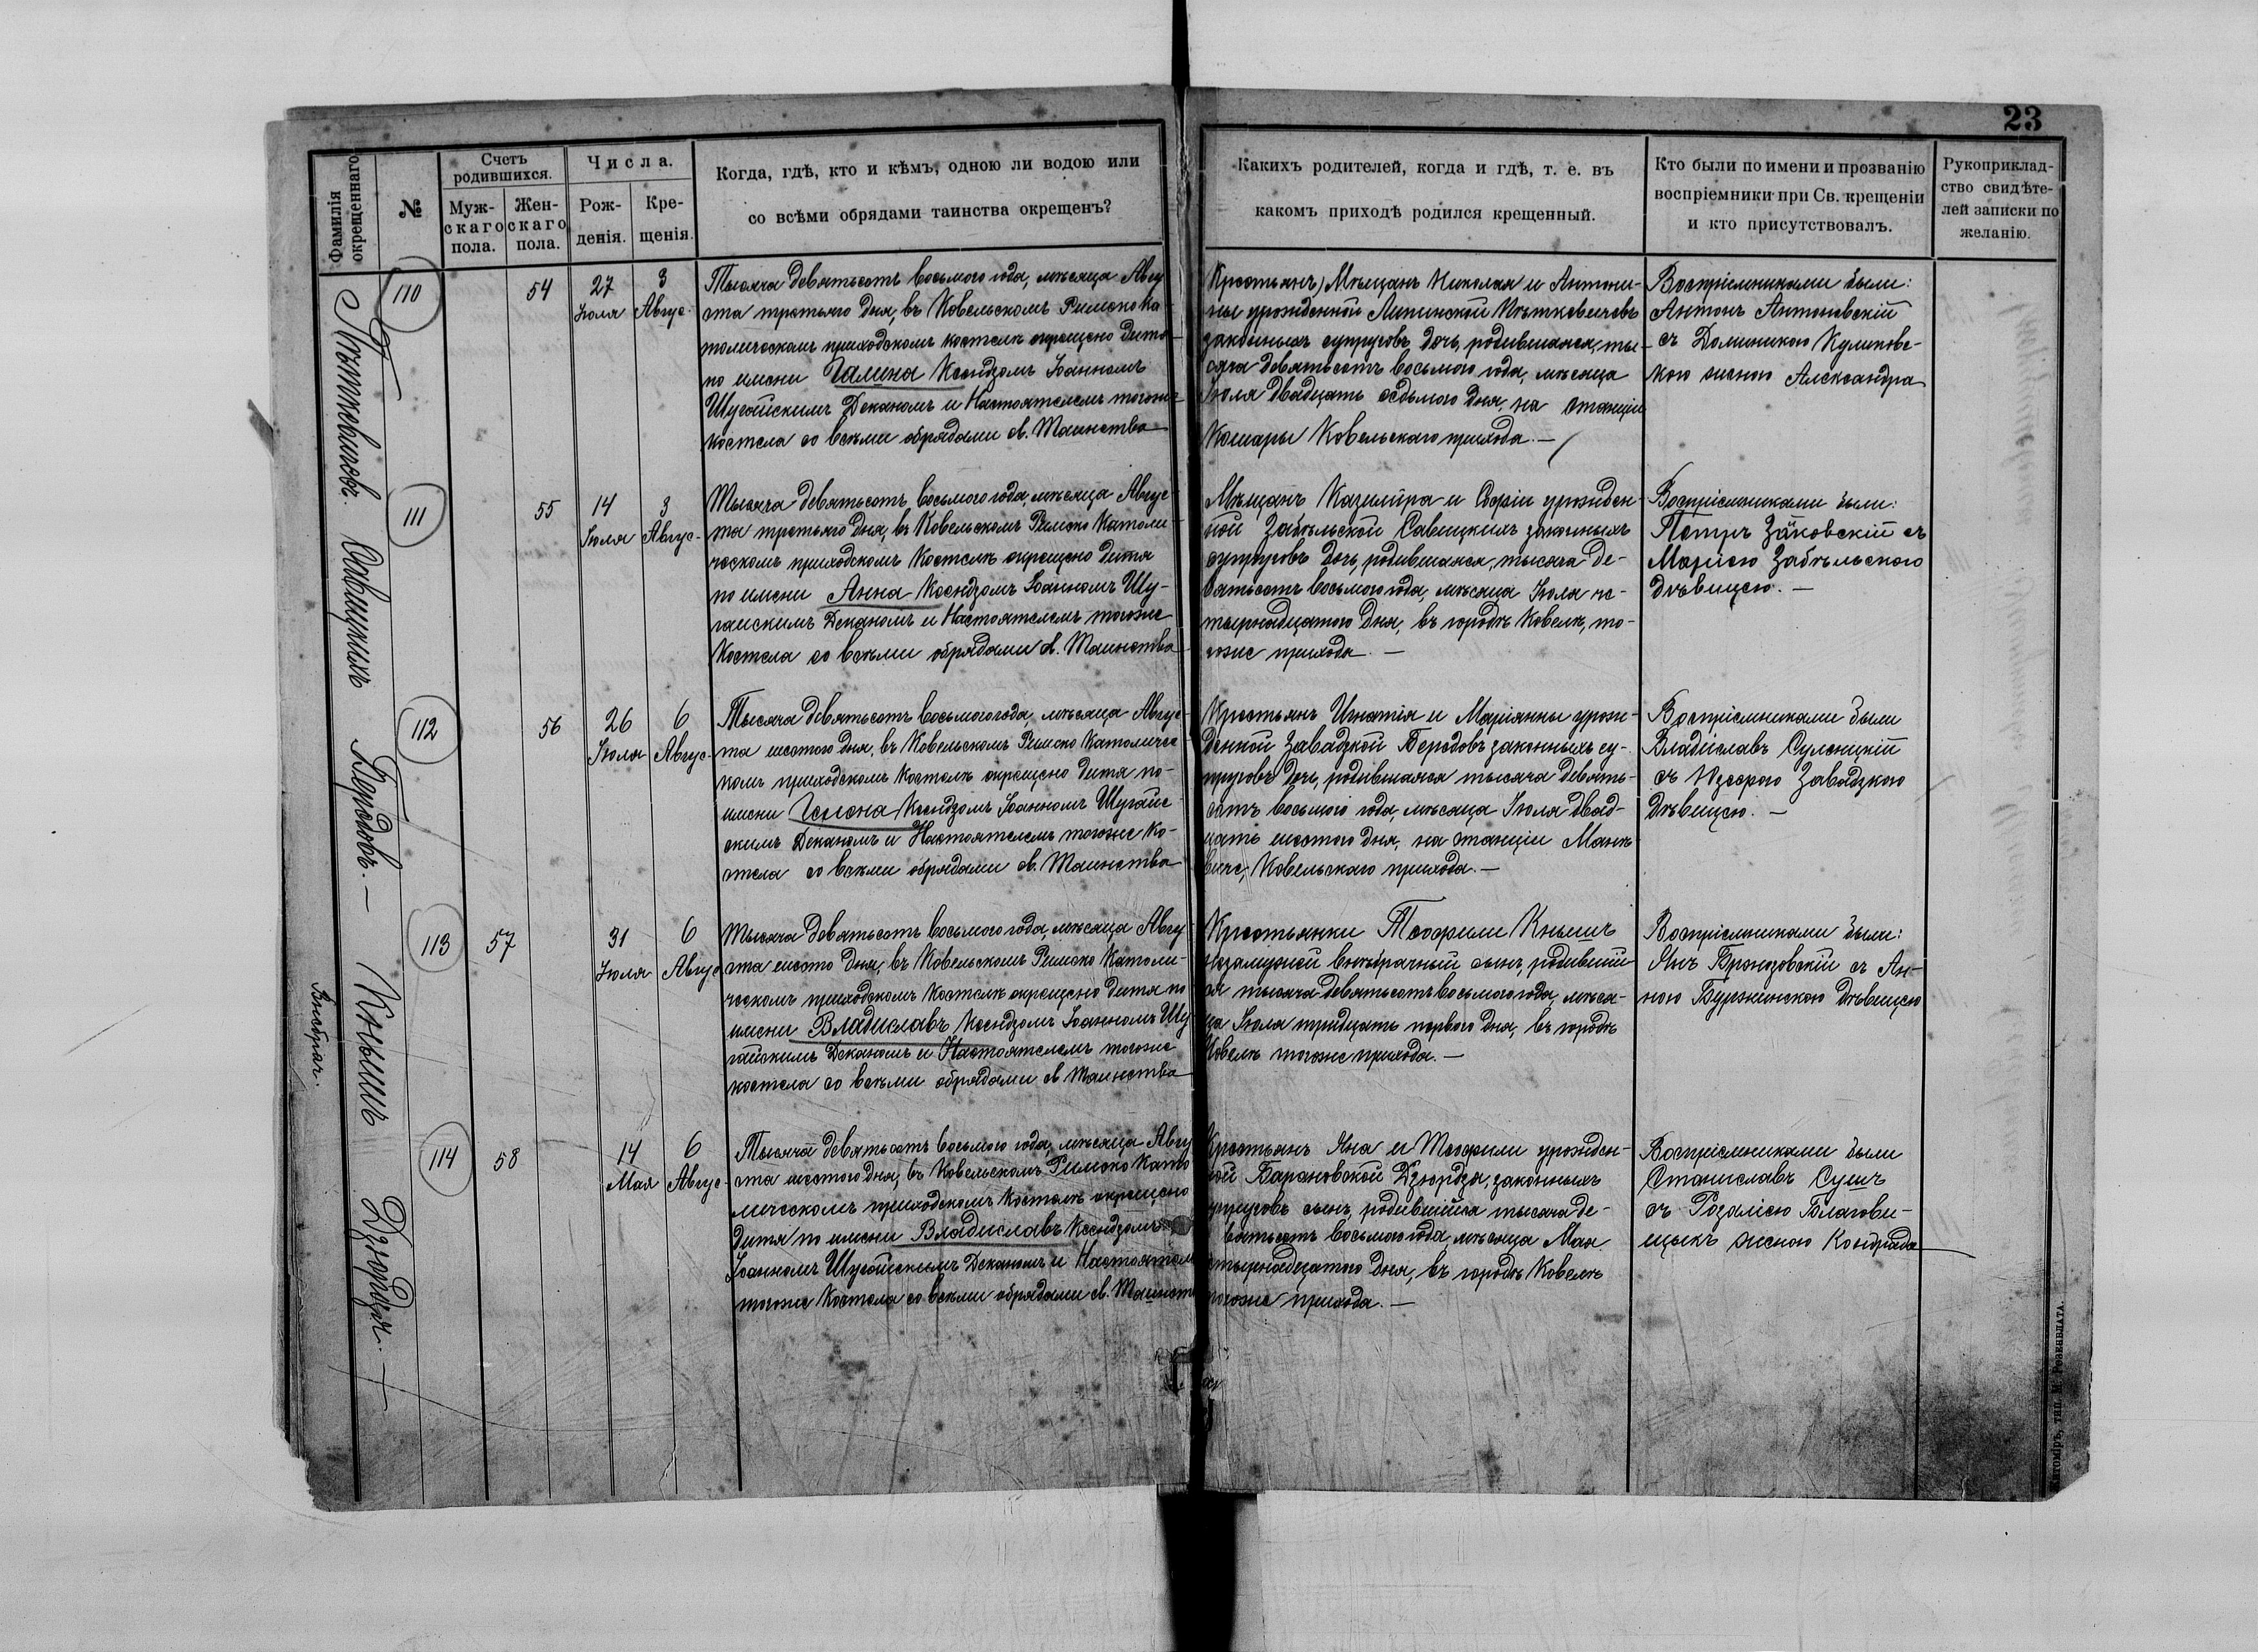 23
Фамилія окрещеннаго.
№
Счетъ родившихся.
Муж-
скаго
пола.
Жен-
скаго
пола.
Числа.
Рож-
денія.
Кре-
щенія.
Когда, гдѣ, кто и кѣмъ, одною ли водою или
со всѣми обрядами таинства окрещенъ?
Какихъ родителей, когда и гдѣ, т. е. въ
какомъ приходѣ родился крещенный.
Кто были по имени и прозванію
воспріемники при Св. крещеніи
и кто присутствовалъ.
Рукоприклад-
ство свидѣте-
лей записки по
желанію.
110
54
27
Іюля
3
Авгус.
Тысяча девятьсотъ восьмого года, мѣсяца Авгу
ста третьяго дня, въ Ковельскомъ Римско Ка
толическомъ приходскомъ костелѣ окрещено дитя
по имени Галина Ксендзомъ Іоанномъ
Шугайскимъ Деканомъ и Настоятелемъ тогоже
костела со всѣми обрядами св. Таинства
(Крестьянъ) Мѣщанъ Николая и Антони-
ны урожденной Липинской
законныхъ супруговъ дочь, родившаяся, ты-
сяча девятьсотъ восьмого года, мѣсяца
Іюля двадцать седьмого дня, на станціи
Кошары Ковельскаго прихода. —
Воспріемниками были:
Антонъ Антоновскій
съ Доминикою Куликовс-
кою женою Александра
Савицкихъ
111
55
14
Іюля
3
Авгус-
Тысяча девятьсотъ восьмого года, мѣсяца Авгус-
та третьяго дня, въ Ковельскомъ Римско Католи-
ческомъ приходскомъ Костелѣ окрещено дитя
по имени Анна Ксендзомъ Іоанномъ Шу-
гайскимъ Деканомъ и Настоятелемъ тогоже
Костела со всѣми обрядами св. Таинства
Мѣщанъ Казиміра и Софіи урожден-
ной Забѣльской Савицкихъ законныхъ
супруговъ дочь, родившаяся, тысяча де-
вятьсотъ восьмого года, мѣсяца Іюля че-
тырнадцатого дня, въ городѣ Ковелѣ, то-
гоже прихода. —
Воспріемниками были:
Петръ съ
Маріею Забѣльскою
дѣвицею. —
Бердовъ. —
112
56
26
Іюля
6
Авгус-
Тысяча девятьсотъ восьмого года мѣсяца Авгус-
та шестого дня, въ Ковельскомъ Римско Католичес-
комъ приходскомъ Костелѣ окрещено дитя по-
имени Гелена Ксендзомъ Іоанномъ Шугайс-
скимъ Деканомъ и Настоятелемъ тогоже Ко-
стела со всѣми обрядами св. Таинства
Крестьянъ Игнатія и Маріанны урож-
денной Завадзкой Бердовъ законныхъ су-
пруговъ дочь, родившаяся тысяча девять-
сотъ восьмого года, мѣсяца Іюля двад-
цать шестого дня, на станціи
Ковельскаго прихода. —
Воспріемниками были
Владиславъ
съ Юзефою Завадзкою
дѣвицею. —
Кнышъ
Внѣбрач.
113
57
31
Іюля
6
Авгус
Тысяча девятьсотъ восьмого года, мѣсяца Авгу-
ста шесто дня, въ Ковельскомъ Римско Католи-
ческомъ приходскомъ Костелѣ окрещено дитя по
имени Владиславъ Ксендзомъ Іоанномъ Шу-
гайскимъ Деканомъ и Настоятелемъ тогоже
костела со всѣми обрядами св Таинства
Крестьянки Теофили Кнышъ
Незамужней внѣбрачный сынъ, родивший-
ся тысяча девятьсотъ восьмого года, мѣся-
ца Іюля тридцать перваго дня, въ городѣ
Ковелѣ тогоже прихода. —
Воспріемниками были:
Янъ съ Ан-
ною дѣвицею
Дзюрдзя. —
114
58
14
Мая
6
Авгус-
Тысяча девятьсотъ восьмого года, мѣсяца Авгу
ста шестого дня, въ Ковельскомъ Римско Като
лическомъ приходскомъ Костелѣ окрещено
дитя по имени Владиславъ Ксендзомъ
Іоанномъ Шугайскимъ Деканомъ и Настоятелем
тогоже Костела со всѣми обрядами св. Таинст
Крестьянъ Яна и Теофили урожден-
ной Барановской Дзюрдзя, законныхъ
супруговъ сынъ, родившійся тысяча де-
вятьсотъ восьмого года, мѣсяца Мая
четырнадцатого дня, въ городѣ Ковелѣ
тогоже прихода. —
Воспріемниками были
Станиславъ Сушъ
съ Розаліею
женою Кондрада
Житоміръ, тип. М. Розенблата.